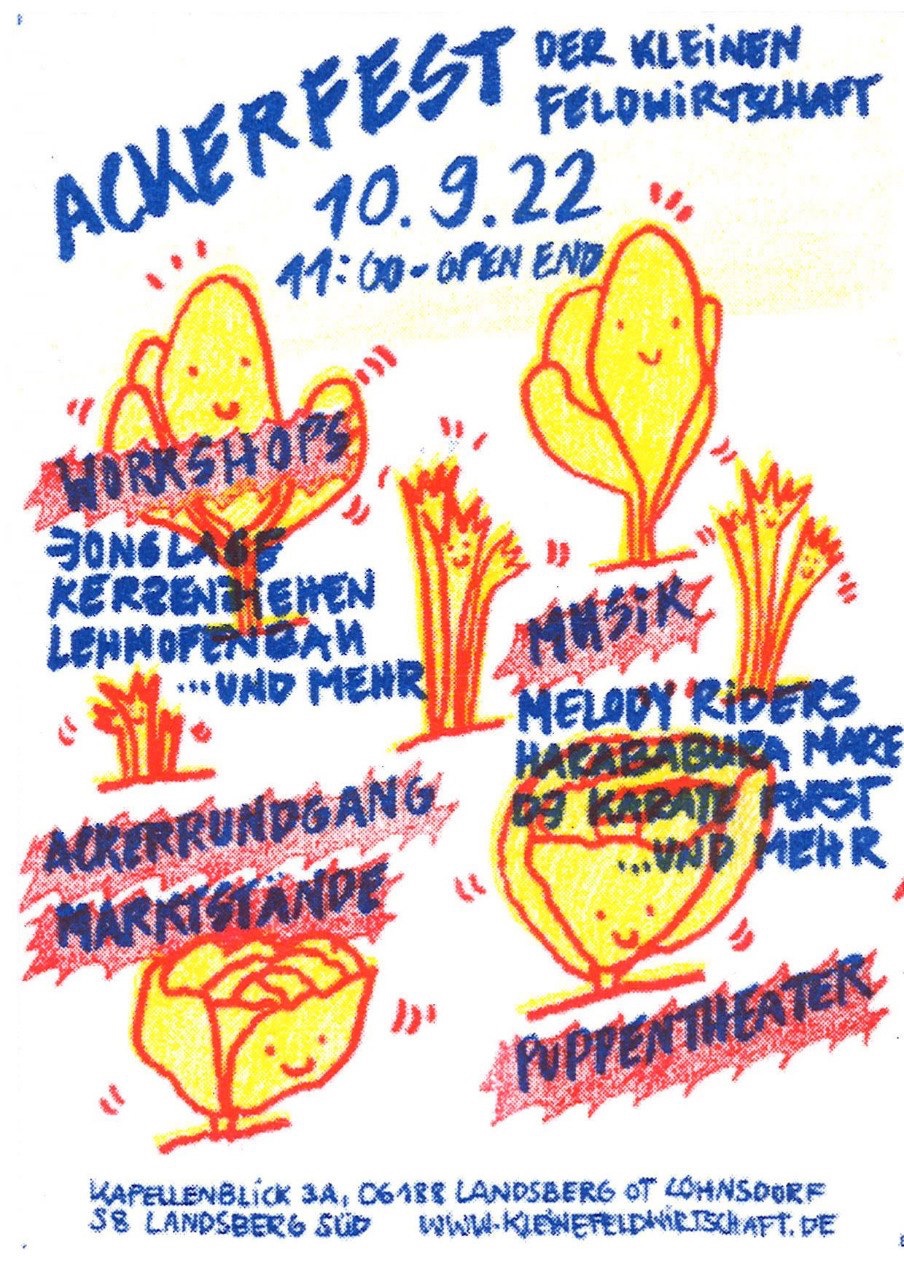 ACKERFEST DER KLEINEN
FELDWIRTSCHAFT
10.9.22
11:00-OPEN END
WORKSHOPS
JONGLAGE
KERZENZIEHEN
LEHMOFENBAU
...UND MEHR
MUSIK
MELODY RIDERS
HARABABURA MARE
DJ KARATE FURST
...UND MEHR
ACKERRUNDGANG
MARKTSTÄNDE
PUPPENTHEATER
KAPELLENBLICK 3A, 06188 LANDSBERG OT LOHNSDORF
S8 LANDSBERG SÜD WWW.KLEINEFELDWIRTSCHAFT.DE